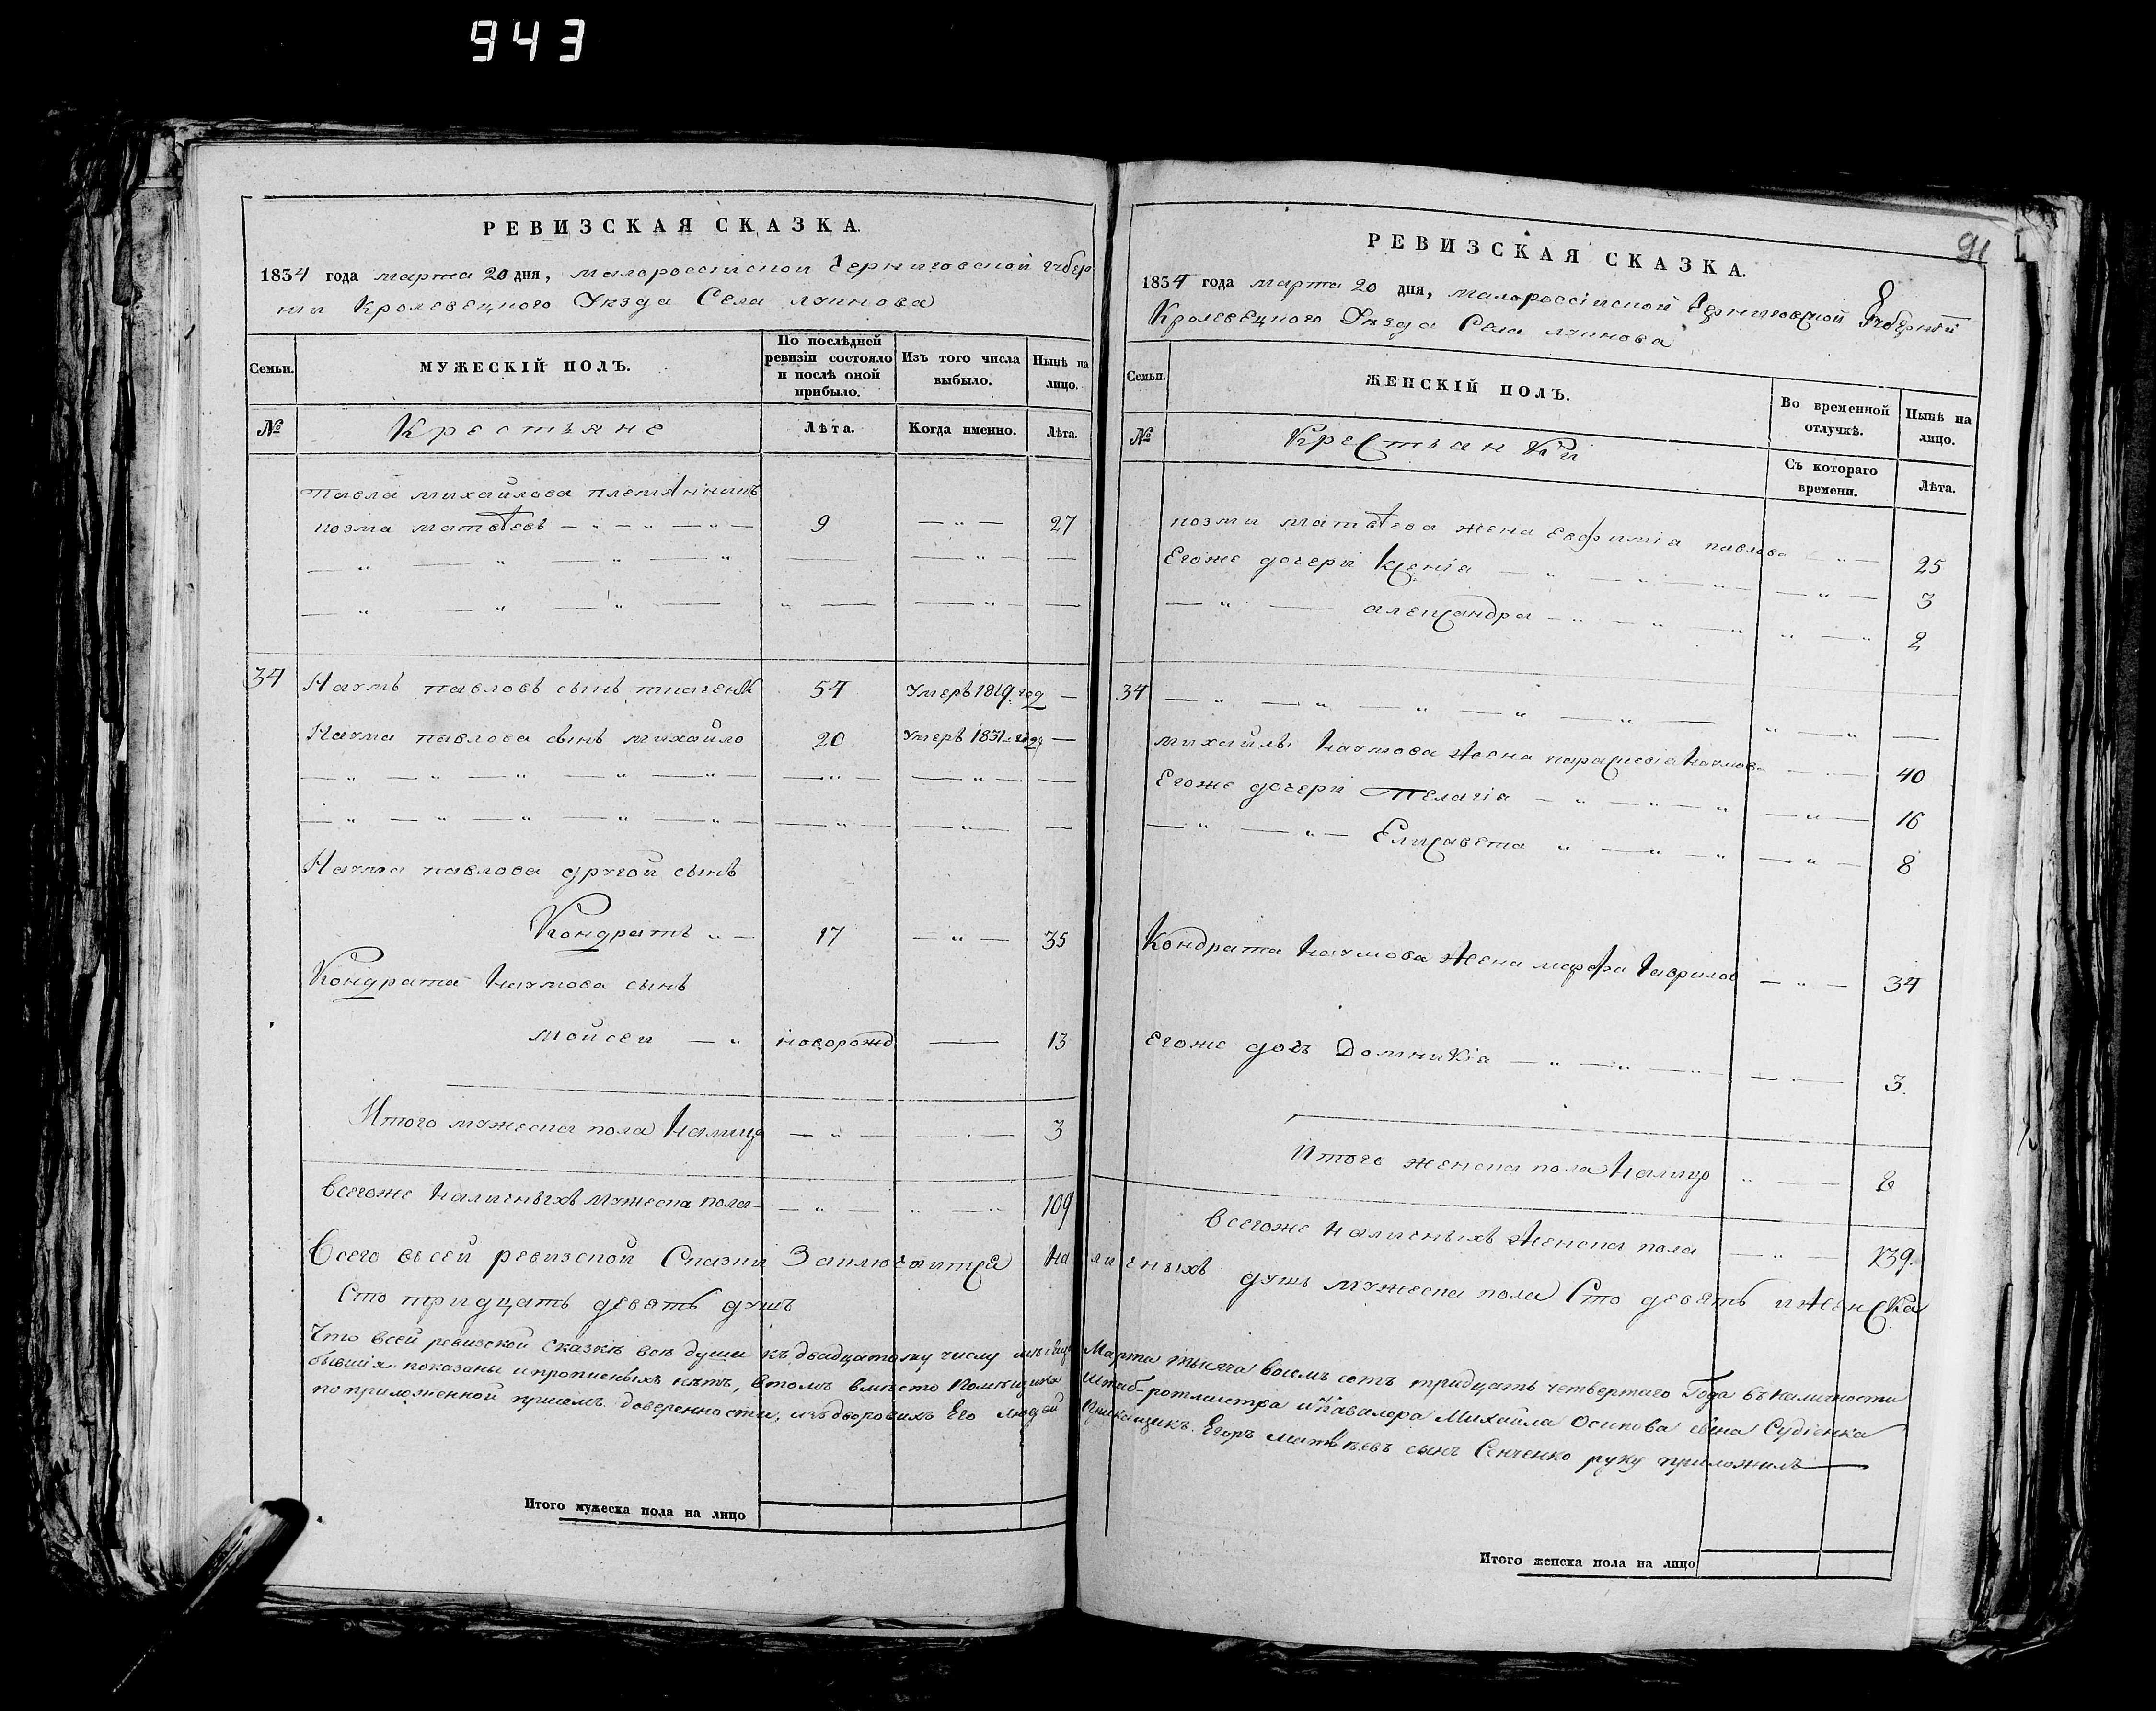 943
РЕВИЗСКАЯ СКАЗКА.
1834 года марта 20 дня, малороссійской Черниговской губер
ніи Кролевецкого Уезда Села
Семьи.
МУЖЕСКІЙ ПОЛЪ.
По послѣдней ревизіи состояло и послѣ оной прибыло.
Изъ того числа выбыло.
Нынѣ на лицо.
№
Крестьяне
Лѣта.
Когда именно.
Лѣта.
Павла михайлова племянникъ
козма матвѣевъ 9 27
34 Наумъ павловъ сынъ 54 умеръ 1819 год
Наума павлова сынъ михайло 20 умеръ 1831
Наума павлова другой сынъ
Кондратъ 17 35
Кондрата наумова сынъ
мойсей новорожд 13
Итого мужеска пола налицо 3
всегоже наличныхъ мужеска пола 109
Всего всей ревизской Сказки Заключаитца на
Сто тридцать девять душъ
Что всей ревизской сказкѣ всѣ души къ двадцатому числу
бывшія показаны и прописныхъ нѣтъ, в томъ вместо Помѣщика
по приложенной присемъ доверенности, изъ дворовыхъ Его людей
Итого мужеска пола на лицо
91
8
РЕВИЗСКАЯ СКАЗКА.
1834 года марта 20 дня, малороссійской Черниговской Губерніи
Кролевецкого Уезда Села
Семьи.
ЖЕНСКІЙ ПОЛЪ.
Во временной отлучкѣ.
Нынѣ на лицо.
№
Крестьянки
Съ котораго времени.
Лѣта.
козми матвѣева жена евфимія павлова 25
Егоже дочери Ксенія 3
александра 2
34
михайлы наумова жена параскевія наумова 40
Егоже дочери Пелагія 16
Елисавета 8
Кондрата наумова жена марфа гаврилов 34
егоже дочь Домникія 3.
Итого женска пола налицо 8
всегоже наличныхъ женска пола 139.
личныхъ душъ мужеска пола Сто девять и женска
Марта тысяча восемъ сотъ тридцать четвертаго Года въ наличности
Штаб-ротмистра и Кавалера Михайла Осипова сына Судіенка
Прикащикъ Егоръ Матвѣевъ сынъ Сенченко руку приложилъ
Итого женска пола на лицо